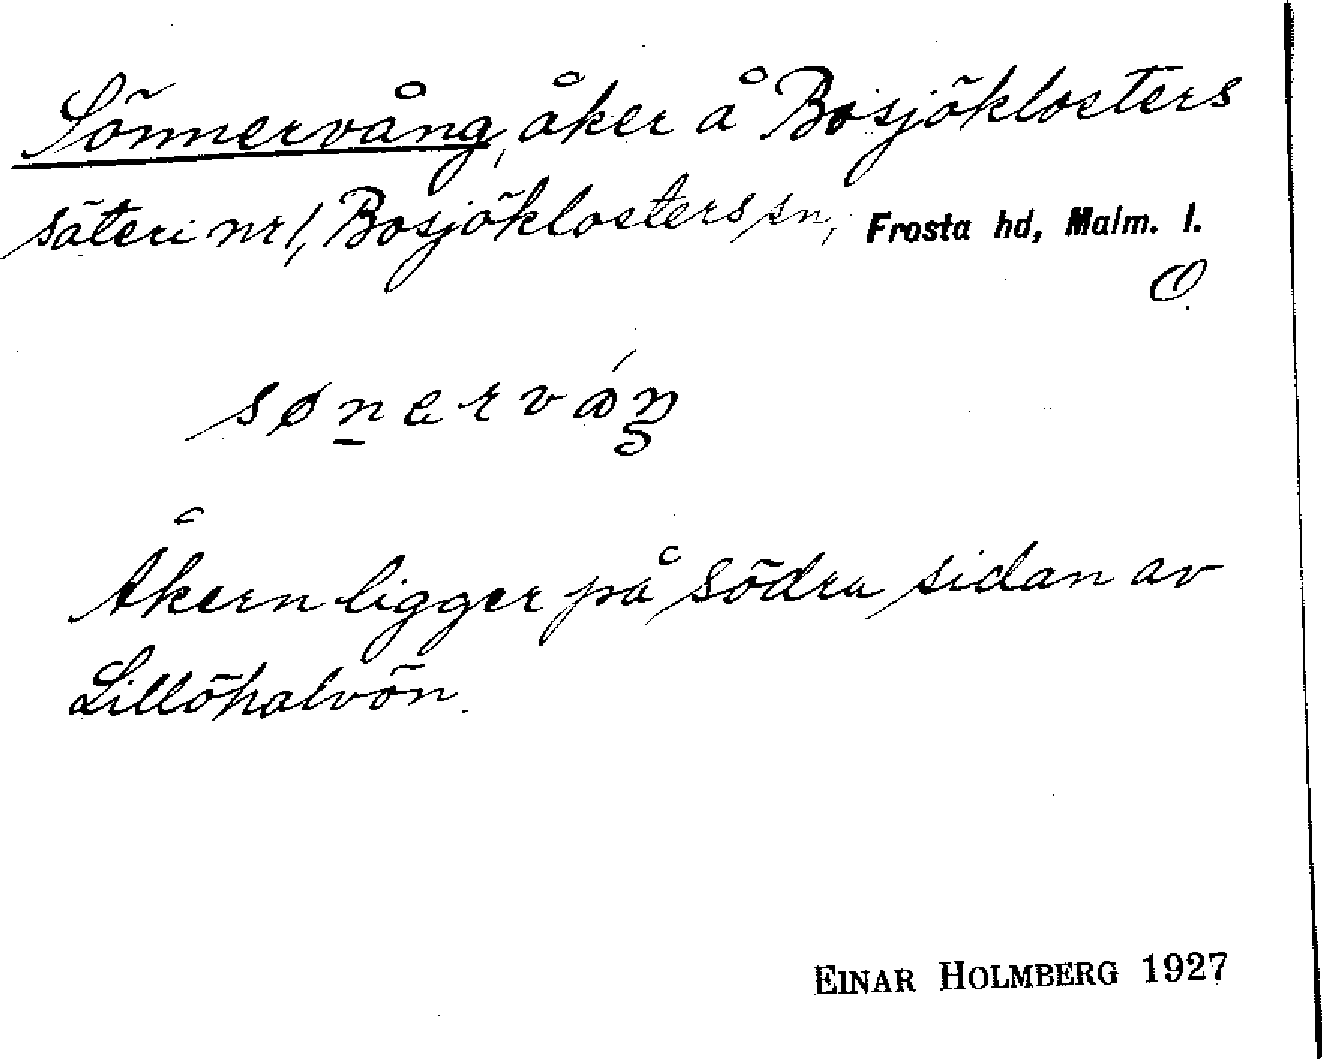 Sönnervång, åker å Bosjöklosters
säteri nr 1, Bosjöklosters sn, Frosta hd, Malm. l.
O
sønervåŋ
Åkern ligger på södra sidan av
Lillöhalvön.
EINAR HOLMBERG 1927